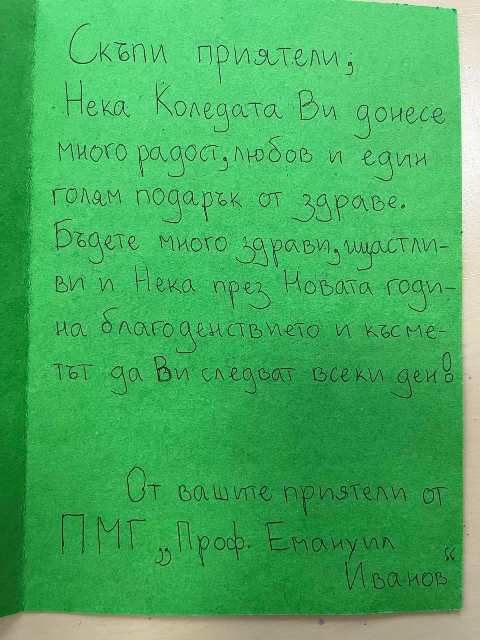 Скъпи приятели,
Нека Коледата Ви донесе
много радост, любов и един
голям подарък от здраве.
Бъдете много здрави, щастли-
ви и Нека през Новата годи-
на благоденствието и късме-
тът да Ви следват всеки ден!
От вашите приятели от
ПМГ „Проф. Емануил
Иванов“